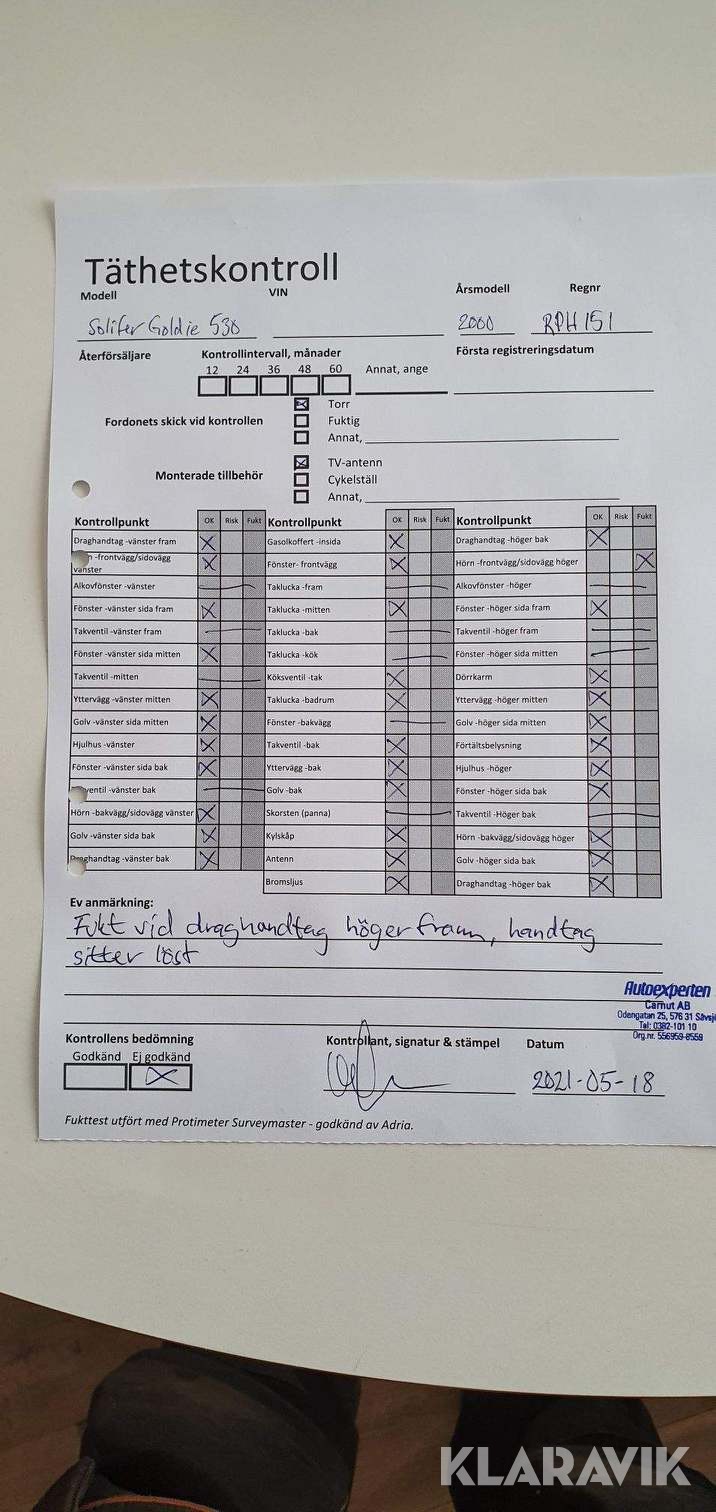 Täthetskontroll
Modell VIN Årsmodell Regnr
Solifer Goldie 530 2000 RPH 151
Återförsäljare Kontrollintervall, månader Första registreringsdatum
12 24 36 48 60 Annat, ange
Torr
Fordonets skick vid kontrollen Fuktig
Annat,
TV-antenn
Monterade tillbehör Cykelställ
Annat,
Kontrollpunkt OK Risk Fukt Kontrollpunkt OK Risk Fukt Kontrollpunkt OK Risk Fukt
Draghandtag -vänster fram Gasolkoffert -insida Draghandtag -höger bak
-frontvägg/sidovägg vänster Fönster- frontvägg Hörn -frontvägg/sidovägg höger
Alkovfönster -vänster Taklucka -fram Alkovfönster -höger
Fönster -vänster sida fram Taklucka -mitten Fönster -höger sida fram
Takventil -vänster fram Taklucka -bak Takventil -höger fram
Fönster -vänster sida mitten Taklucka -kök Fönster -höger sida mitten
Takventil -mitten Köksventil -tak Dörrkarm
Yttervägg -vänster mitten Taklucka -badrum Yttervägg -höger mitten
Golv -vänster sida mitten Fönster -bakvägg Golv -höger sida mitten
Hjulhus -vänster Takventil -bak Förtältsbelysning
Fönster -vänster sida bak Yttervägg -bak Hjulhus -höger
ventil -vänster bak Golv -bak Fönster -höger sida bak
Hörn -bakvägg/sidovägg vänster Skorsten (panna) Takventil -Höger bak
Golv -vänster sida bak Kylskåp Hörn -bakvägg/sidovägg höger
Draghandtag -vänster bak Antenn Golv -höger sida bak
Bromsljus Draghandtag -höger bak
Ev anmärkning:
Fukt vid draghandtag höger fram, handtag
sitter löst
Autoexperten
Carnut AB
Odengatan 25, 576 31 Sävsj
Tel: 0382-101 10
Org.nr. 556959-8559
Kontrollens bedömning Kontrollant, signatur & stämpel Datum
Godkänd Ej godkänd
2021-05-18
Fukttest utfört med Protimeter Surveymaster - godkänd av Adria.
KLARAVIK